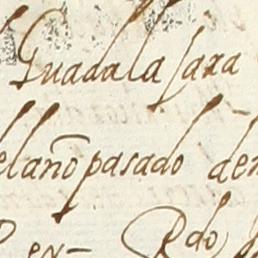 Guadalaxara
el año pasado de
Rdo